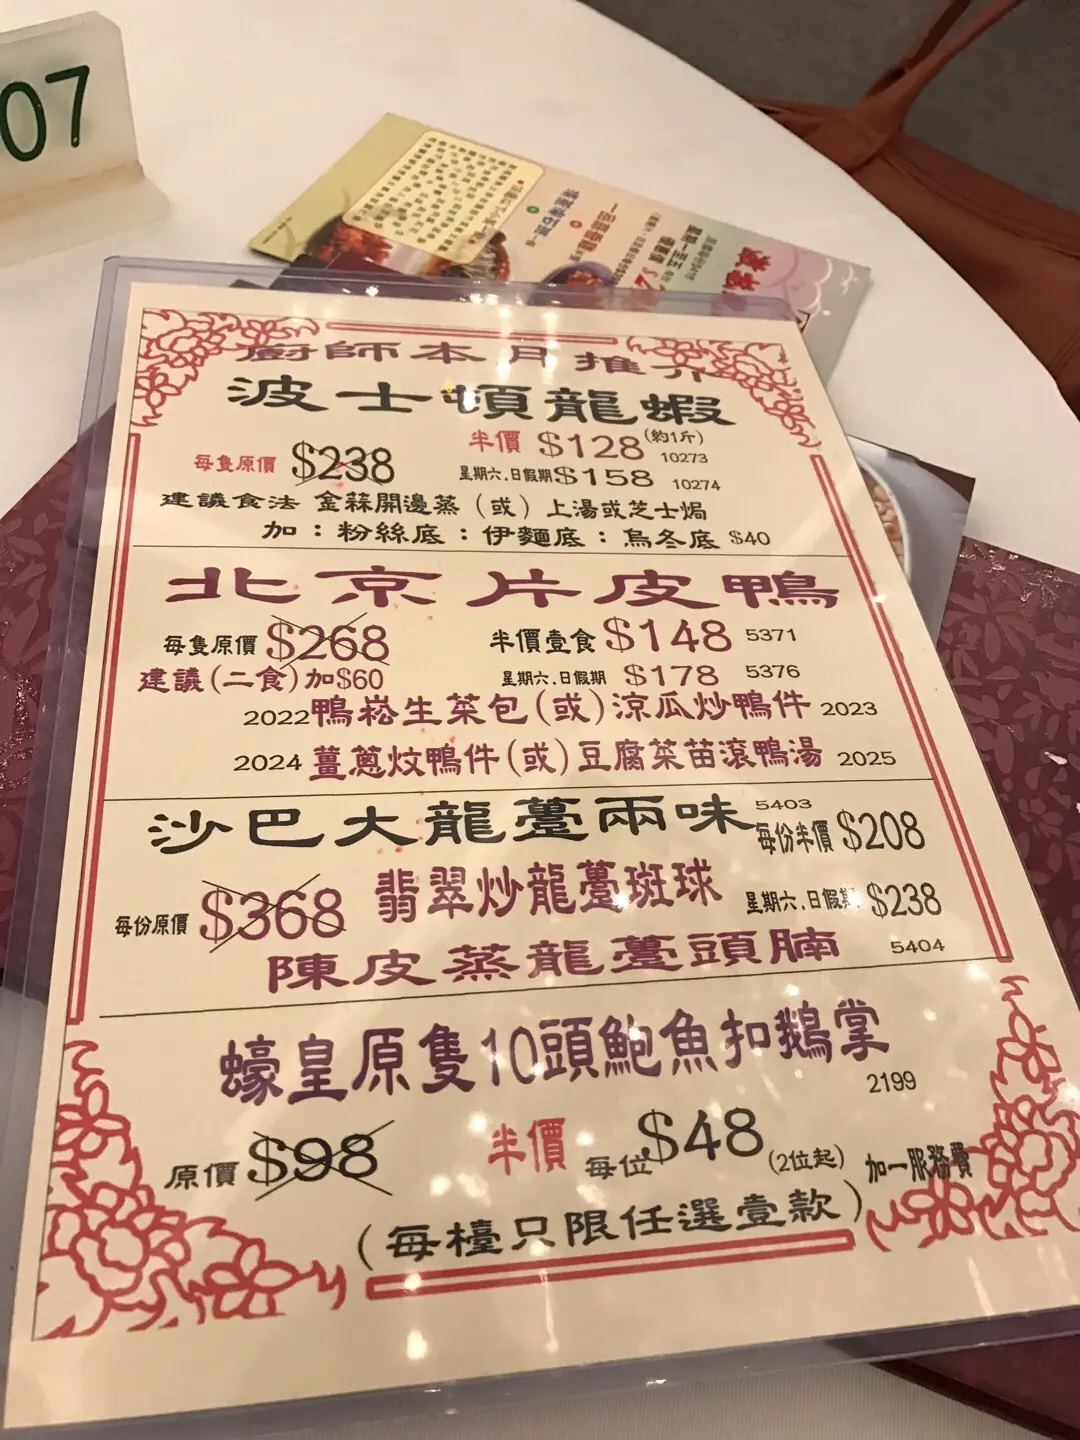 07
廚師本月推介
波士頓龍蝦
每隻原價 $238 半價 $128 (約1斤) 10273
星期六.日假期 $158 10274
建議食法 金蒜開邊蒸 (或) 上湯或芝士焗
加：粉絲底：伊麵底：烏冬底 $40
北京片皮鴨
每隻原價 $268 半價壹食 $148 5371
建議(二食)加$60 星期六.日假期 $178 5376
2022 鴨崧生菜包(或)涼瓜炒鴨件 2023
2024 薑蔥炆鴨件(或)豆腐菜苗滾鴨湯 2025
沙巴大龍躉兩味 5403 每份半價 $208
每份原價 $368 翡翠炒龍躉斑球 星期六.日假期 $238
陳皮蒸龍躉頭腩 5404
蠔皇原隻10頭鮑魚扣鵝掌
2199
原價 $98 半價 每位 $48 (2位起) 加一服務費
(每檯只限任選壹款)